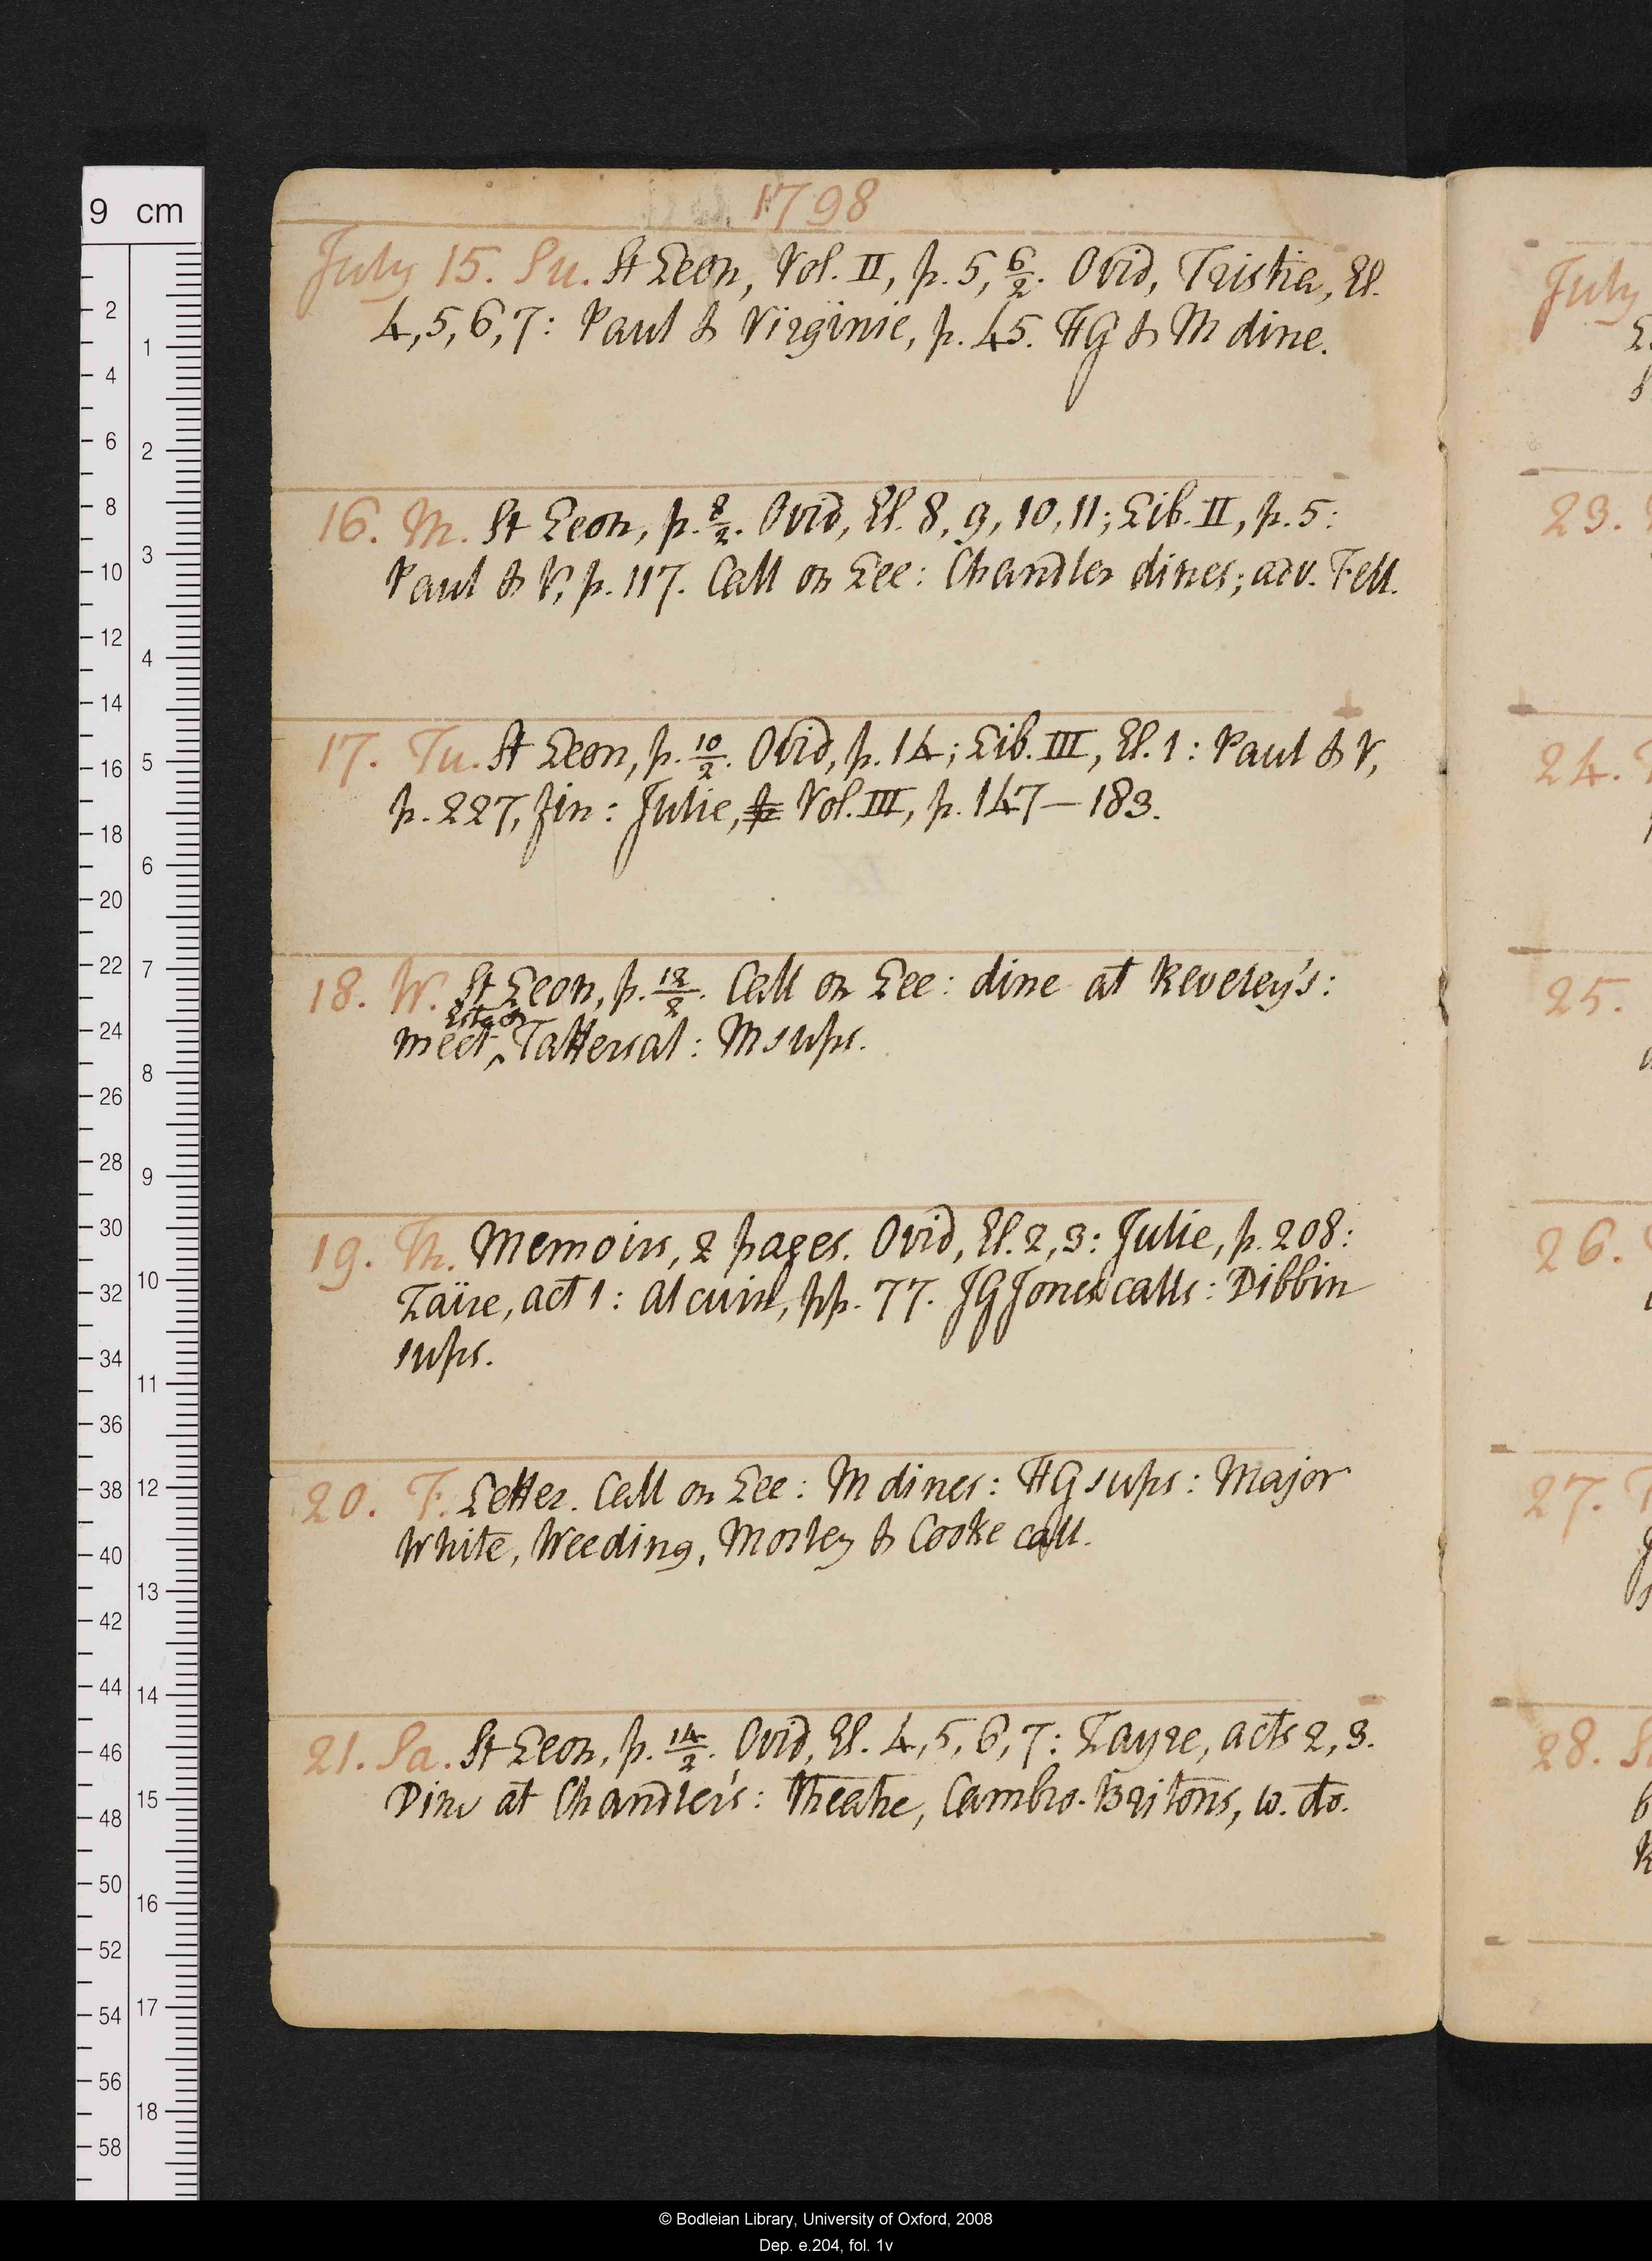 1798
July 15. Su. St Leon, Vol. II, p. 5, 6/2. Ovid, Tristia, El.
4, 5, 6, 7: Paul & Virginie, p. 45. HG & M dine.
16. M. St Leon, p. 8/2. Ovid, El. 8, 9, 10, 11; Lib. II, p. 5:
Paul & V, p. 117. Call on Lee: Chandler dines; adv. Fell.
17. Tu. St Leon, p. 10/2. Ovid, p. 14; Lib. III, El. 1: Paul & V,
p. 227, fin: Julie, p Vol. III, p. 147—183.
18. W. St Leon, p. 12/2. Call on Lee: dine at Reveley's:
meet Tattersal: M sups.
19. Th. Memoirs, 2 pages. Ovid, El. 2, 3: Julie, p. 208:
Zaïre, act 1: Alcuin, pp. 77. JG Jones calls: Dibbin
sups.
20. F. Letter. Call on Lee: M dines: HG sups: Major
White, Weeding, Morley & Cooke call.
21. Sa. St Leon, p. 14/2. Ovid, El. 4, 5, 6, 7: Zayre, acts 2, 3.
Dine at Chandler's: theatre, Cambro-Britons, w. do.
July
23.
24.
25.
26.
27.
28.
9 cm
2
4
6
8
10
12
14
16
18
20
22
24
26
28
30
32
34
36
38
40
42
44
46
48
50
52
54
56
58
1
2
3
4
5
6
7
8
9
10
11
12
13
14
15
16
17
18
© Bodleian Library, University of Oxford, 2008
Dep. e.204, fol. 1v